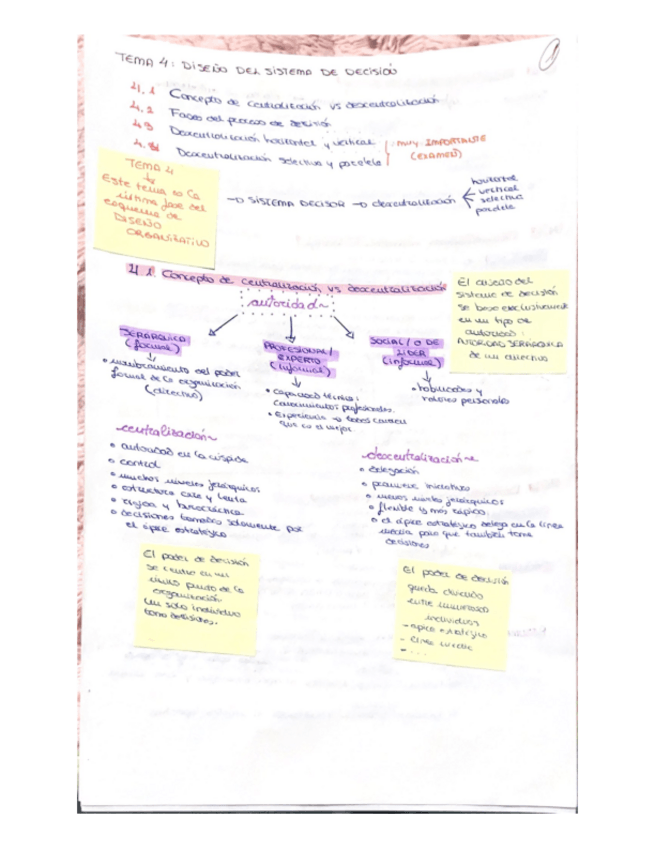 1
TEMA 4: DISEÑO DEL SISTEMA DE DECISIÓN
4.1 Concepto de centralización vs descentralización
4.2 Fases del proceso de decisión
4.3 Descentralización horizontal y vertical
4.4 Descentralización selectiva y paralela
muy IMPORTANTE
(EXAMEN)
TEMA 4
Este tema es la
última fase del
esquema de
DISEÑO
ORGANIZATIVO
→ SISTEMA DECISOR → descentralización
horizontal
vertical
selectiva
paralela
4.1 Concepto de centralización vs descentralización
autoridad
El diseño del
sistema de decisión
se basa exclusivamente
en un tipo de
autoridad:
AUTORIDAD JERÁRQUICA
de un directivo
JERÁRQUICA
(formal)
• nombramiento del poder
formal de la organización
(directivo)
PROFESIONAL/
EXPERTO
(informal)
• capacidad técnica:
conocimientos profesionales.
• Experiencia → todos conocen
que es el mejor
SOCIAL/O DE
LIDER
(informal)
• habilidades y
valores personales
centralización
• autoridad en la cúspide
• control
• muchos niveles jerárquicos
• estructura cara y lenta
• rígida y burocrática
• decisiones tomadas solamente por
el ápice estratégico
descentralización
• delegación
• promueve iniciativa
• menos niveles jerárquicos
• flexible y más rápida.
• el ápice estratégico delega en la línea
media para que también tome
decisiones
El poder de decisión
se centra en un
único punto de la
organización.
Un solo individuo
toma decisiones.
El poder de decisión
queda dividido
entre numerosos
individuos
- ápice estratégico
- línea media
- ...